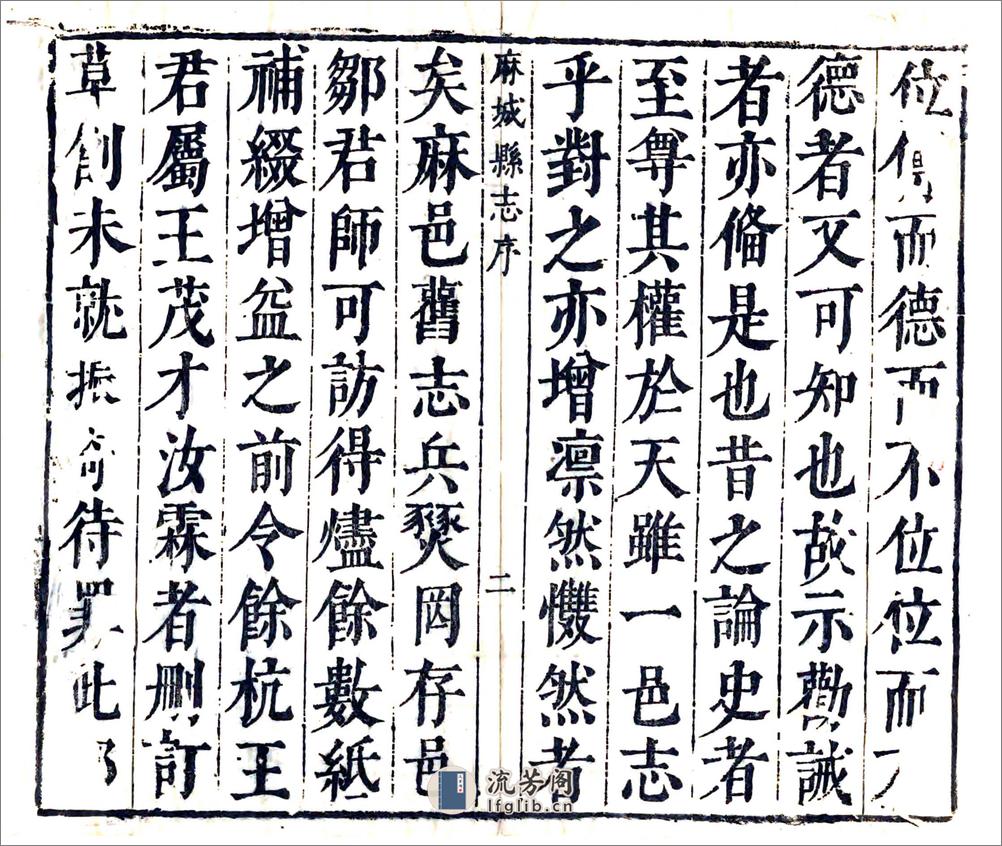 位得而德而不位位而
德者又可知也故示勸誡
者亦俻是也昔之論史者
至尊其權於天雖一邑志
乎對之亦增凛然戄然者
麻城縣志序
二
矣麻邑舊志兵燹罔存邑
鄒君師可訪得燼餘數紙
補綴增益之前令餘杭王
君屬王茂才汝霖者刪訂
草創未就振奇待罪此
流芳阁
lfglib.cn